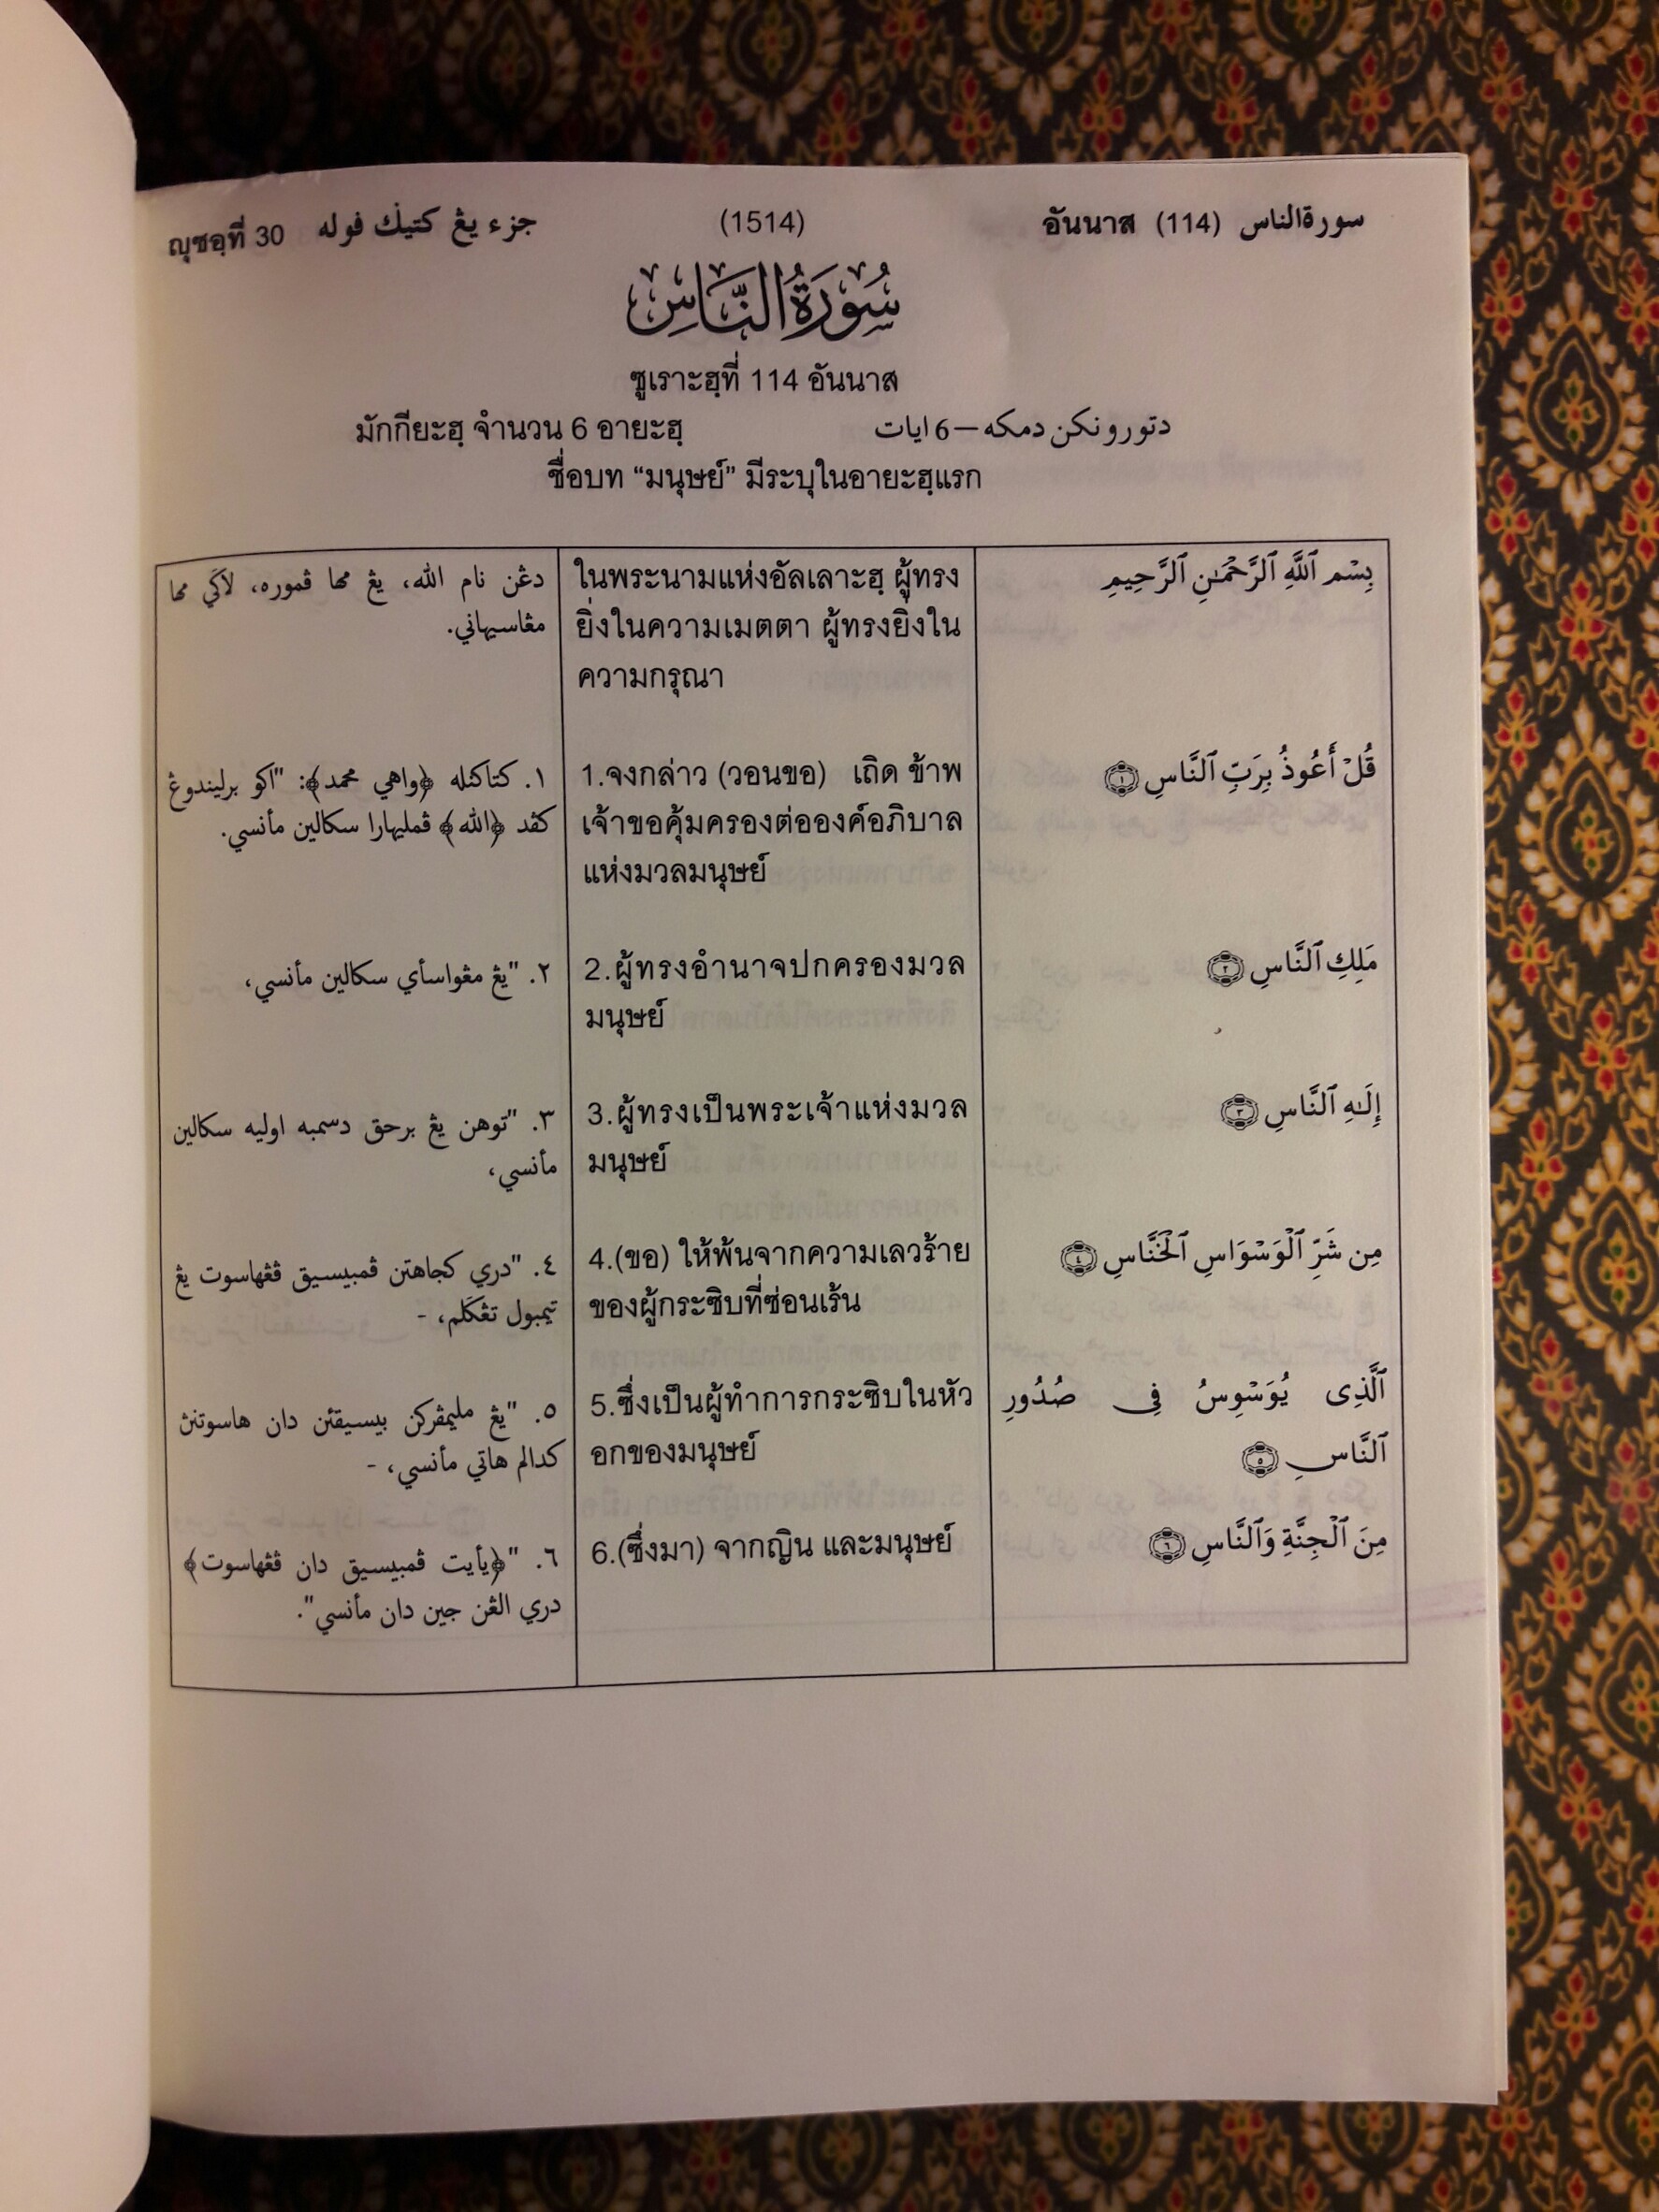 سورةالناس (114) อันนาส
(1514)
جزء يڠ كتيݢ ڤوله ญุซอฺที่ 30
سُورَةُ النَّاسِ
ซูเราะฮฺที่ 114 อันนาส
มักกียะฮฺ จำนวน 6 อายะฮฺ
دتورونكن دمكه — 6 ايات
ชื่อบท “มนุษย์” มีระบุในอายะฮฺแรก
بِسْمِ ٱللَّهِ ٱلرَّحْمَٰنِ ٱلرَّحِيمِ
قُلْ أَعُوذُ بِرَبِّ ٱلنَّاسِ ١
مَلِكِ ٱلنَّاسِ ٢
إِلَٰهِ ٱلنَّاسِ ٣
مِن شَرِّ ٱلْوَسْوَاسِ ٱلْخَنَّاسِ ٤
ٱلَّذِى يُوَسْوِسُ فِى صُدُورِ
ٱلنَّاسِ ٥
مِنَ ٱلْجِنَّةِ وَٱلنَّاسِ ٦
ในพระนามแห่งอัลเลาะฮฺ ผู้ทรง
ยิ่งในความเมตตา ผู้ทรงยิ่งใน
ความกรุณา
1.จงกล่าว (วอนขอ) เถิด ข้าพ
เจ้าขอคุ้มครองต่อองค์อภิบาล
แห่งมวลมนุษย์
2.ผู้ทรงอำนาจปกครองมวล
มนุษย์
3.ผู้ทรงเป็นพระเจ้าแห่งมวล
มนุษย์
4.(ขอ) ให้พ้นจากความเลวร้าย
ของผู้กระซิบที่ซ่อนเร้น
5.ซึ่งเป็นผู้ทำการกระซิบในหัว
อกของมนุษย์
6.(ซึ่งมา) จากญิน และมนุษย์
دڠن نام الله، يڠ مها ڤموره، لاݢي مها
مڠاسيهاني.
١. كتاكنله ﴿واهي محمد﴾: "اكو برليندوڠ
كڤد ﴿الله﴾ ڤمليهارا سكالين مأنسي.
٢. "يڠ مڠواسأي سكالين مأنسي،
٣. "توهن يڠ برحق دسمبه اوليه سكالين
مأنسي،
٤. "دري كجاهتن ڤمبيسيق ڤڠهاسوت يڠ
تيمبول تڠݢلم، -
٥. "يڠ مليمڤركن بيسيقئن دان هاسوتنڽ
كدالم هاتي مأنسي، -
٦. "﴿يأيت ڤمبيسيق دان ڤڠهاسوت﴾
دري كالڠن جين دان مأنسي".